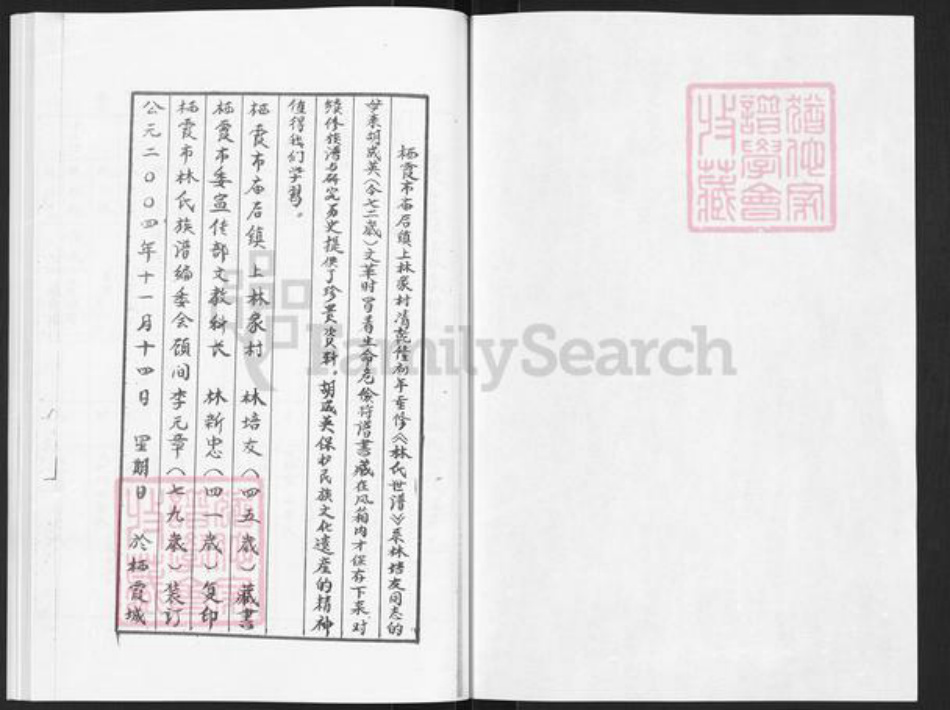 栖霞市庙后镇上林家村清乾隆初年重修《林氏世谱》系林培友同志的
母亲胡成英（今七二岁）文革时冒着生命危险将谱書藏在风箱内才保存下来，对
续修族谱与研究历史提供了珍贵资料，胡成英保护民族文化遗产的精神
值得我们学習。
栖霞市庙后镇上林家村 林培友（四五岁）藏書
栖霞市委宣传部文教科长 林新忠（四一岁）复印
栖霞市林氏族谱编委会顾问李元章（七九岁）装订
公元二〇〇四年十一月十四日 星期日 於栖霞城
猶他家
譜學會
收藏
FamilySearch